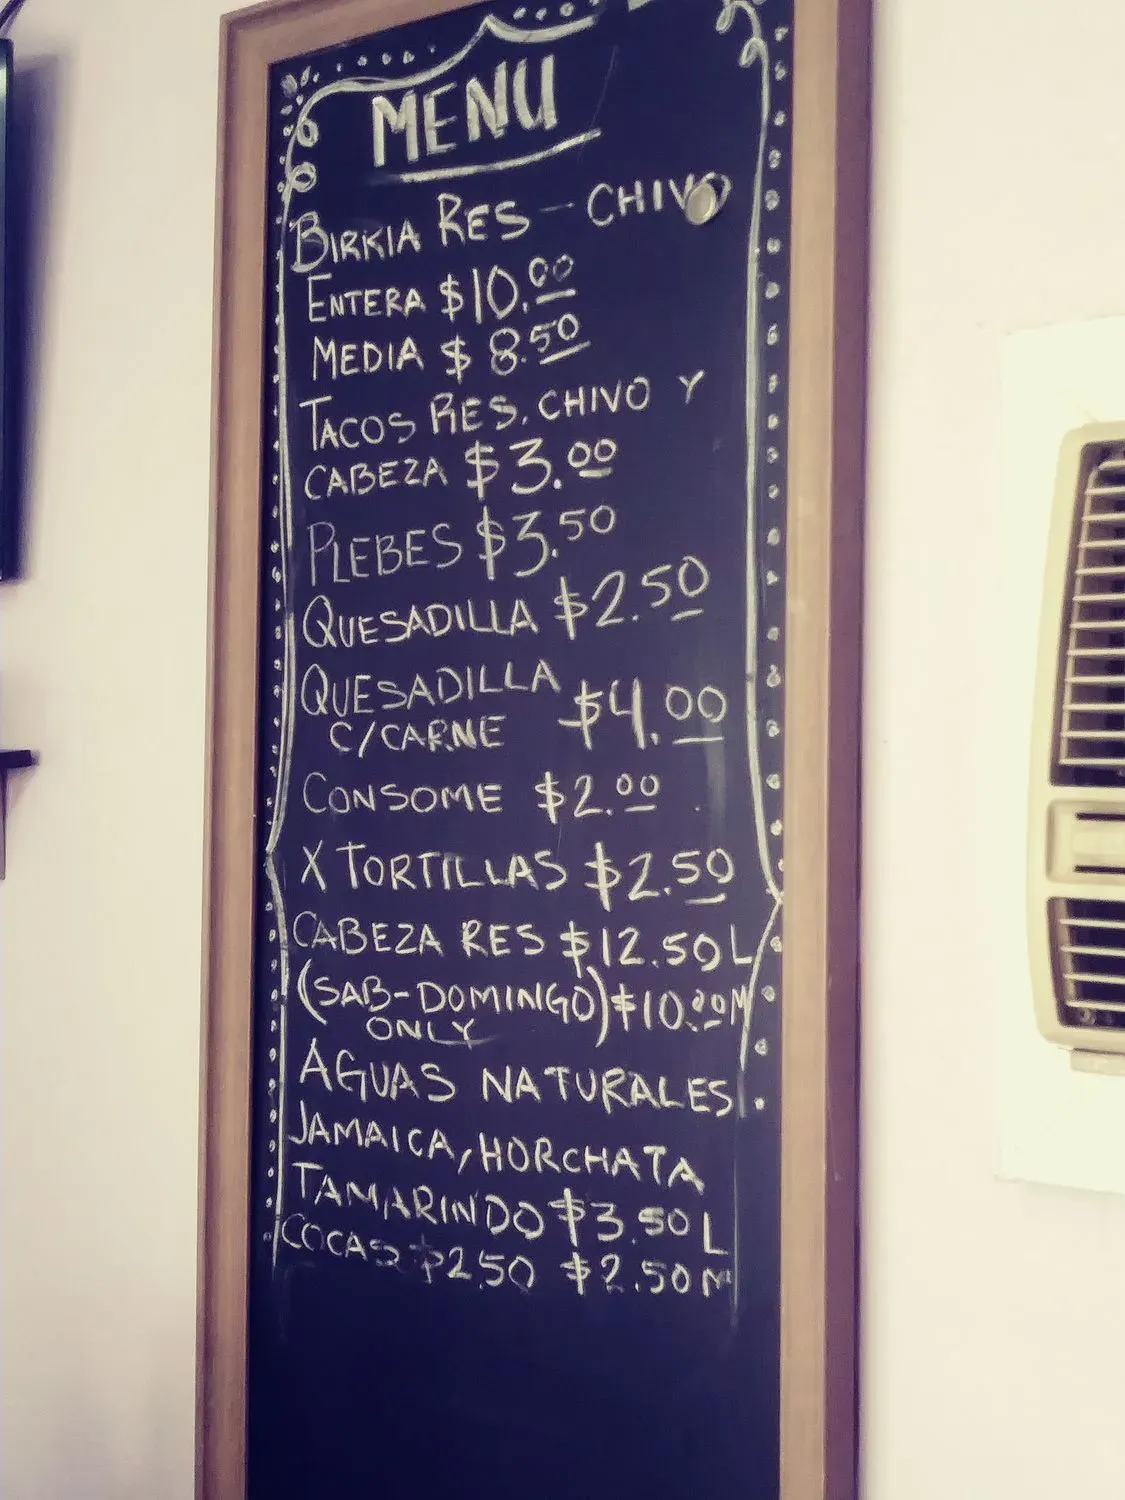 MENU
BIRKIA RES - CHIVO
ENTERA $10.00
MEDIA $8.50
TACOS RES, CHIVO Y
CABEZA $3.00
PLEBES $3.50
QUESADILLA $2.50
QUESADILLA
C/CARNE $4.00
CONSOME $2.00
X TORTILLAS $2.50
CABEZA RES $12.50 L
(SAB-DOMINGO) $10.00 M
ONLY
AGUAS NATURALES
JAMAICA, HORCHATA
TAMARINDO $3.50 L
COCAS $2.50 $2.50 M